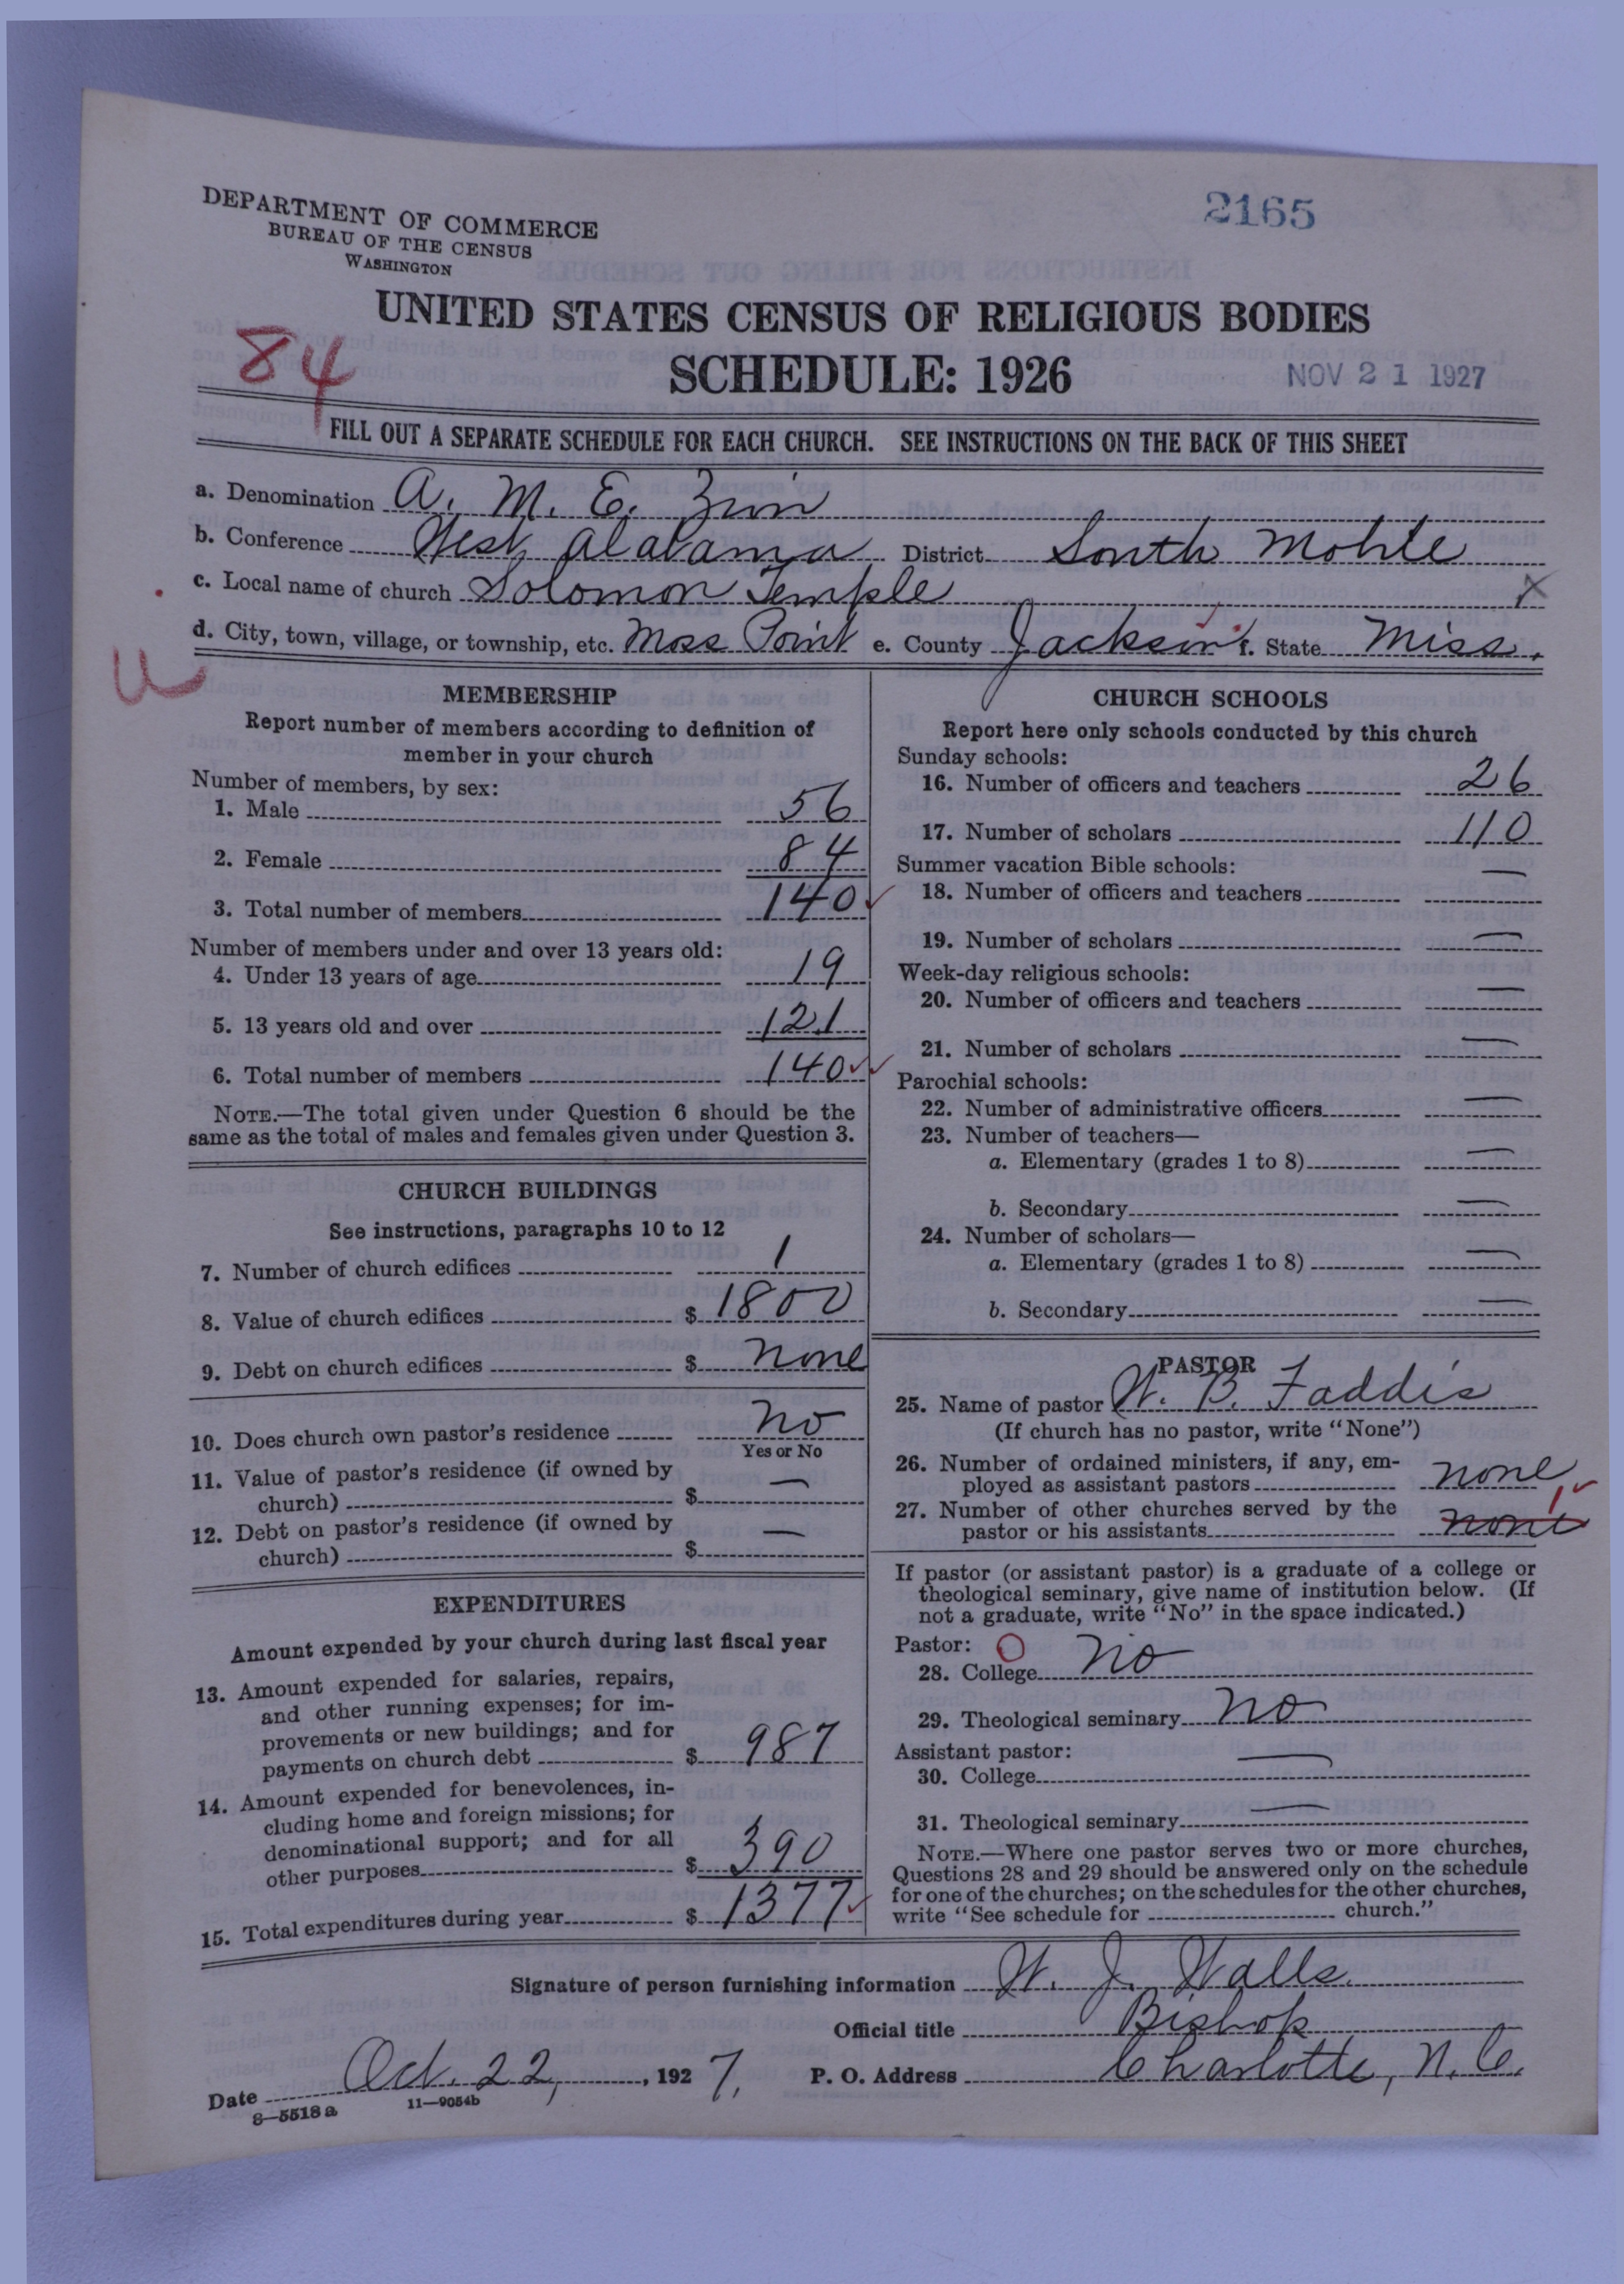 DEPARTMENT OF COMMERCE
BUREAU OF THE CENSUS
WASHINGTON
2165
UNITED STATES CENSUS OF RELIGIOUS BODIES
84
SCHEDULE: 1926
NOV 21 1927
FILL OUT A SEPARATE SCHEDULE FOR EACH CHURCH. SEE INSTRUCTIONS ON THE BACK OF THIS SHEET
a. Denomination A. M. E. Zion
b. Conference West Alabama District South Mobile
c. Local name of church Solomon Temple X
d. City, town, village, or township, etc. Moss Point e. County Jackson f. State Miss.
MEMBERSHIP
Report number of members according to definition of
member in your church
Number of members, by sex:
1. Male 56
2. Female 84
3. Total number of members 140
Number of members under and over 13 years old:
4. Under 13 years of age 19
5. 13 years old and over 121
6. Total number of members 140
NOTE.—The total given under Question 6 should be the
same as the total of males and females given under Question 3.
CHURCH BUILDINGS
See instructions, paragraphs 10 to 12
7. Number of church edifices 1
8. Value of church edifices $ 1800
9. Debt on church edifices $ none
10. Does church own pastor's residence no
Yes or No
11. Value of pastor's residence (if owned by
church) $ —
12. Debt on pastor's residence (if owned by
church) $ —
EXPENDITURES
Amount expended by your church during last fiscal year
13. Amount expended for salaries, repairs,
and other running expenses; for im-
provements or new buildings; and for
payments on church debt $ 987
14. Amount expended for benevolences, in-
cluding home and foreign missions; for
denominational support; and for all
other purposes $ 390
15. Total expenditures during year $ 1377
CHURCH SCHOOLS
Report here only schools conducted by this church
Sunday schools:
16. Number of officers and teachers 26
17. Number of scholars 110
Summer vacation Bible schools:
18. Number of officers and teachers —
19. Number of scholars —
Week-day religious schools:
20. Number of officers and teachers —
21. Number of scholars —
Parochial schools:
22. Number of administrative officers —
23. Number of teachers—
a. Elementary (grades 1 to 8) —
b. Secondary —
24. Number of scholars—
a. Elementary (grades 1 to 8) —
b. Secondary —
PASTOR
25. Name of pastor W. B. Faddis
(If church has no pastor, write "None")
26. Number of ordained ministers, if any, em-
ployed as assistant pastors none
27. Number of other churches served by the
pastor or his assistants none 1
If pastor (or assistant pastor) is a graduate of a college or
theological seminary, give name of institution below. (If
not a graduate, write "No" in the space indicated.)
Pastor: O
28. College no
29. Theological seminary no
Assistant pastor:
30. College —
31. Theological seminary —
NOTE.—Where one pastor serves two or more churches,
Questions 28 and 29 should be answered only on the schedule
for one of the churches; on the schedules for the other churches,
write "See schedule for church."
Signature of person furnishing information W. J. Walls
Official title Bishop
Date Oct. 22, 1927. P. O. Address Charlotte, N. C.
8—5518a 11—9054b